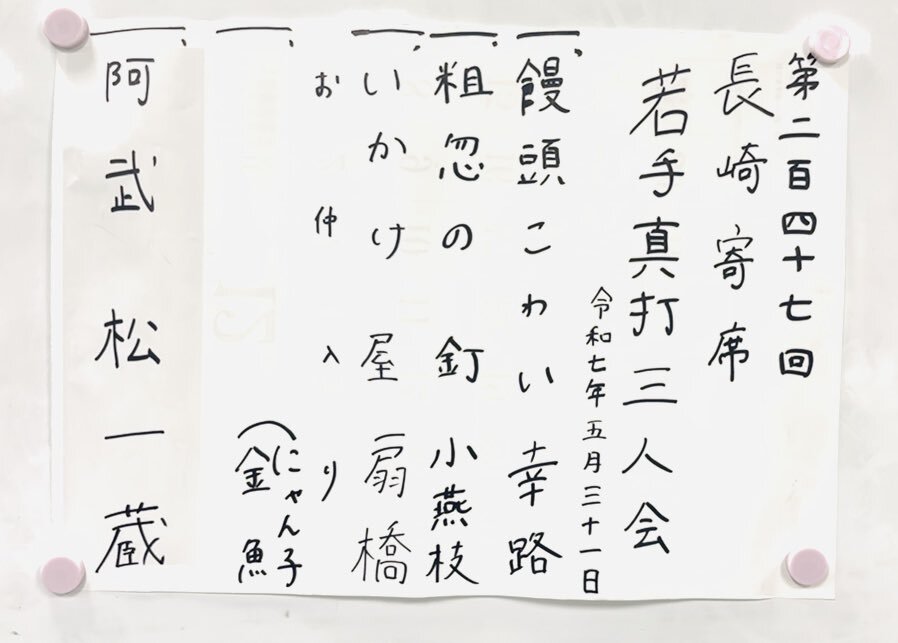 第二百四十七回
長崎寄席
若手真打三人会
令和七年五月三十一日
一、饅頭こわい 幸路
一、粗忽の釘 小燕枝
一、いかけ屋 扇橋
お仲入り
一、(にゃん子
金魚
一、阿武松 一蔵